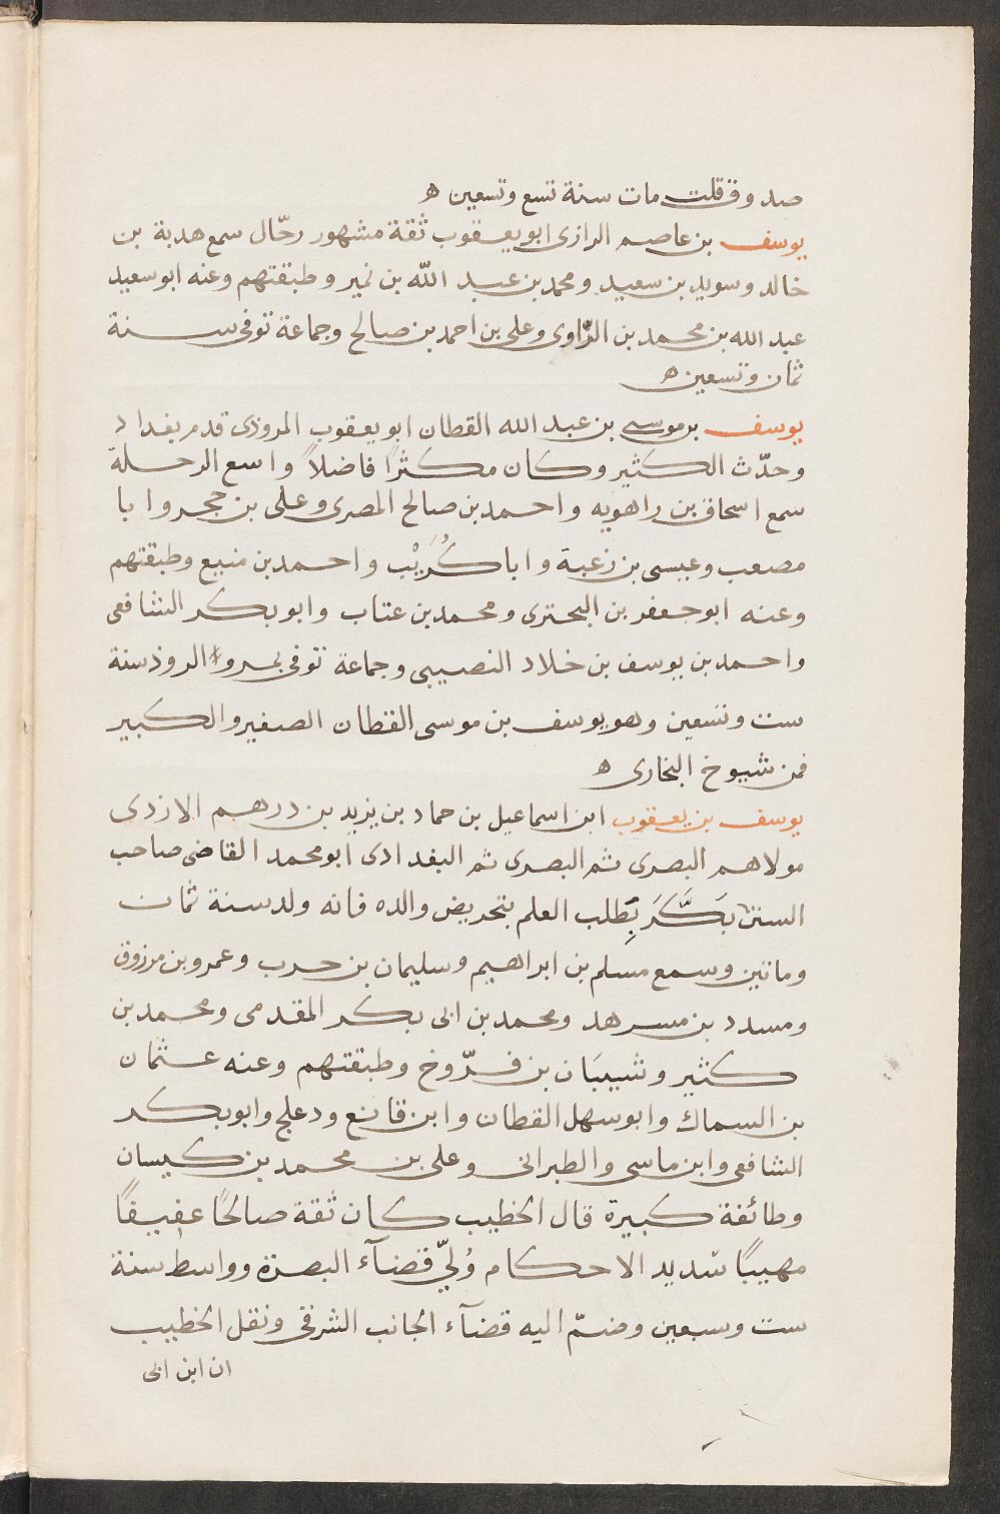 صدوق قلت مات سنة تسع وتسعين ه
يوسف بن عاصم الرازى ابو يعقوب ثقة مشهور رحّال سمع هدبة بن
خالد وسويد بن سعيد ومحمد بن عبد اللّه بن نمير وطبقتهم وعنه ابو سعيد
عبد الله بن محمد بن الرّاوى وعلى بن احمد بن صالح وجماعة توفى سنة
ثمان وتسعين ه
يوسف بن موسى بن عبد الله القطان ابو يعقوب المروزى قدم بغداد
وحدّث الكثير وكان مكثرًا فاضلاً واسع الرحلة
سمع اسحاق بن راهويه واحمد بن صالح المصرى وعلى بن حجر وابا
مصعب وعيسى بن زغبة وابا كُرَيْب واحمد بن منيع وطبقتهم
وعنه ابو جعفر بن البحترى ومحمد بن عتاب وابو بكر الشافعى
واحمد بن يوسف بن خلاد النصيبى وجماعة توفى بمرو الروذ سنة
ست وتسعين وهو يوسف بن موسى القطان الصغير والكبير
فمن شيوخ البخارى ه
يوسف بن يعقوب ابن اسماعيل بن حماد بن يزيد بن درهم الازدى
مولاهم البصرى ثم البصرى ثم البغدادى ابو محمد القاضى صاحب
السنن بَكَّرَ بِطلب العلم بتحريض والده فانه ولد سنة ثمان
ومائتين وسمع مسلم بن ابراهيم وسليمان بن حرب وعمرو بن مرزوق
ومسدد بن مسرهد ومحمد بن ابى بكر المقدمى ومحمد بن
كثير وشيبَان بن فرّوخ وطبقتهم وعنه عثمان
بن السماك وابو سهل القطان وابن قانع ودعلج وابو بكر
الشافعى وابن ماسى والطبرانى وعلى بن محمد بن كيسان
وطائفة كبيرة قال الخطيب كان ثقة صالحًا عفيفًا
مهيبًا شديد الاحكام وُليّ قضآء البصرة وواسط سنة
ست وسبعين وضمّ اليه قضآء الجانب الشرقى ونقل الخطيب
ان ابن ابى